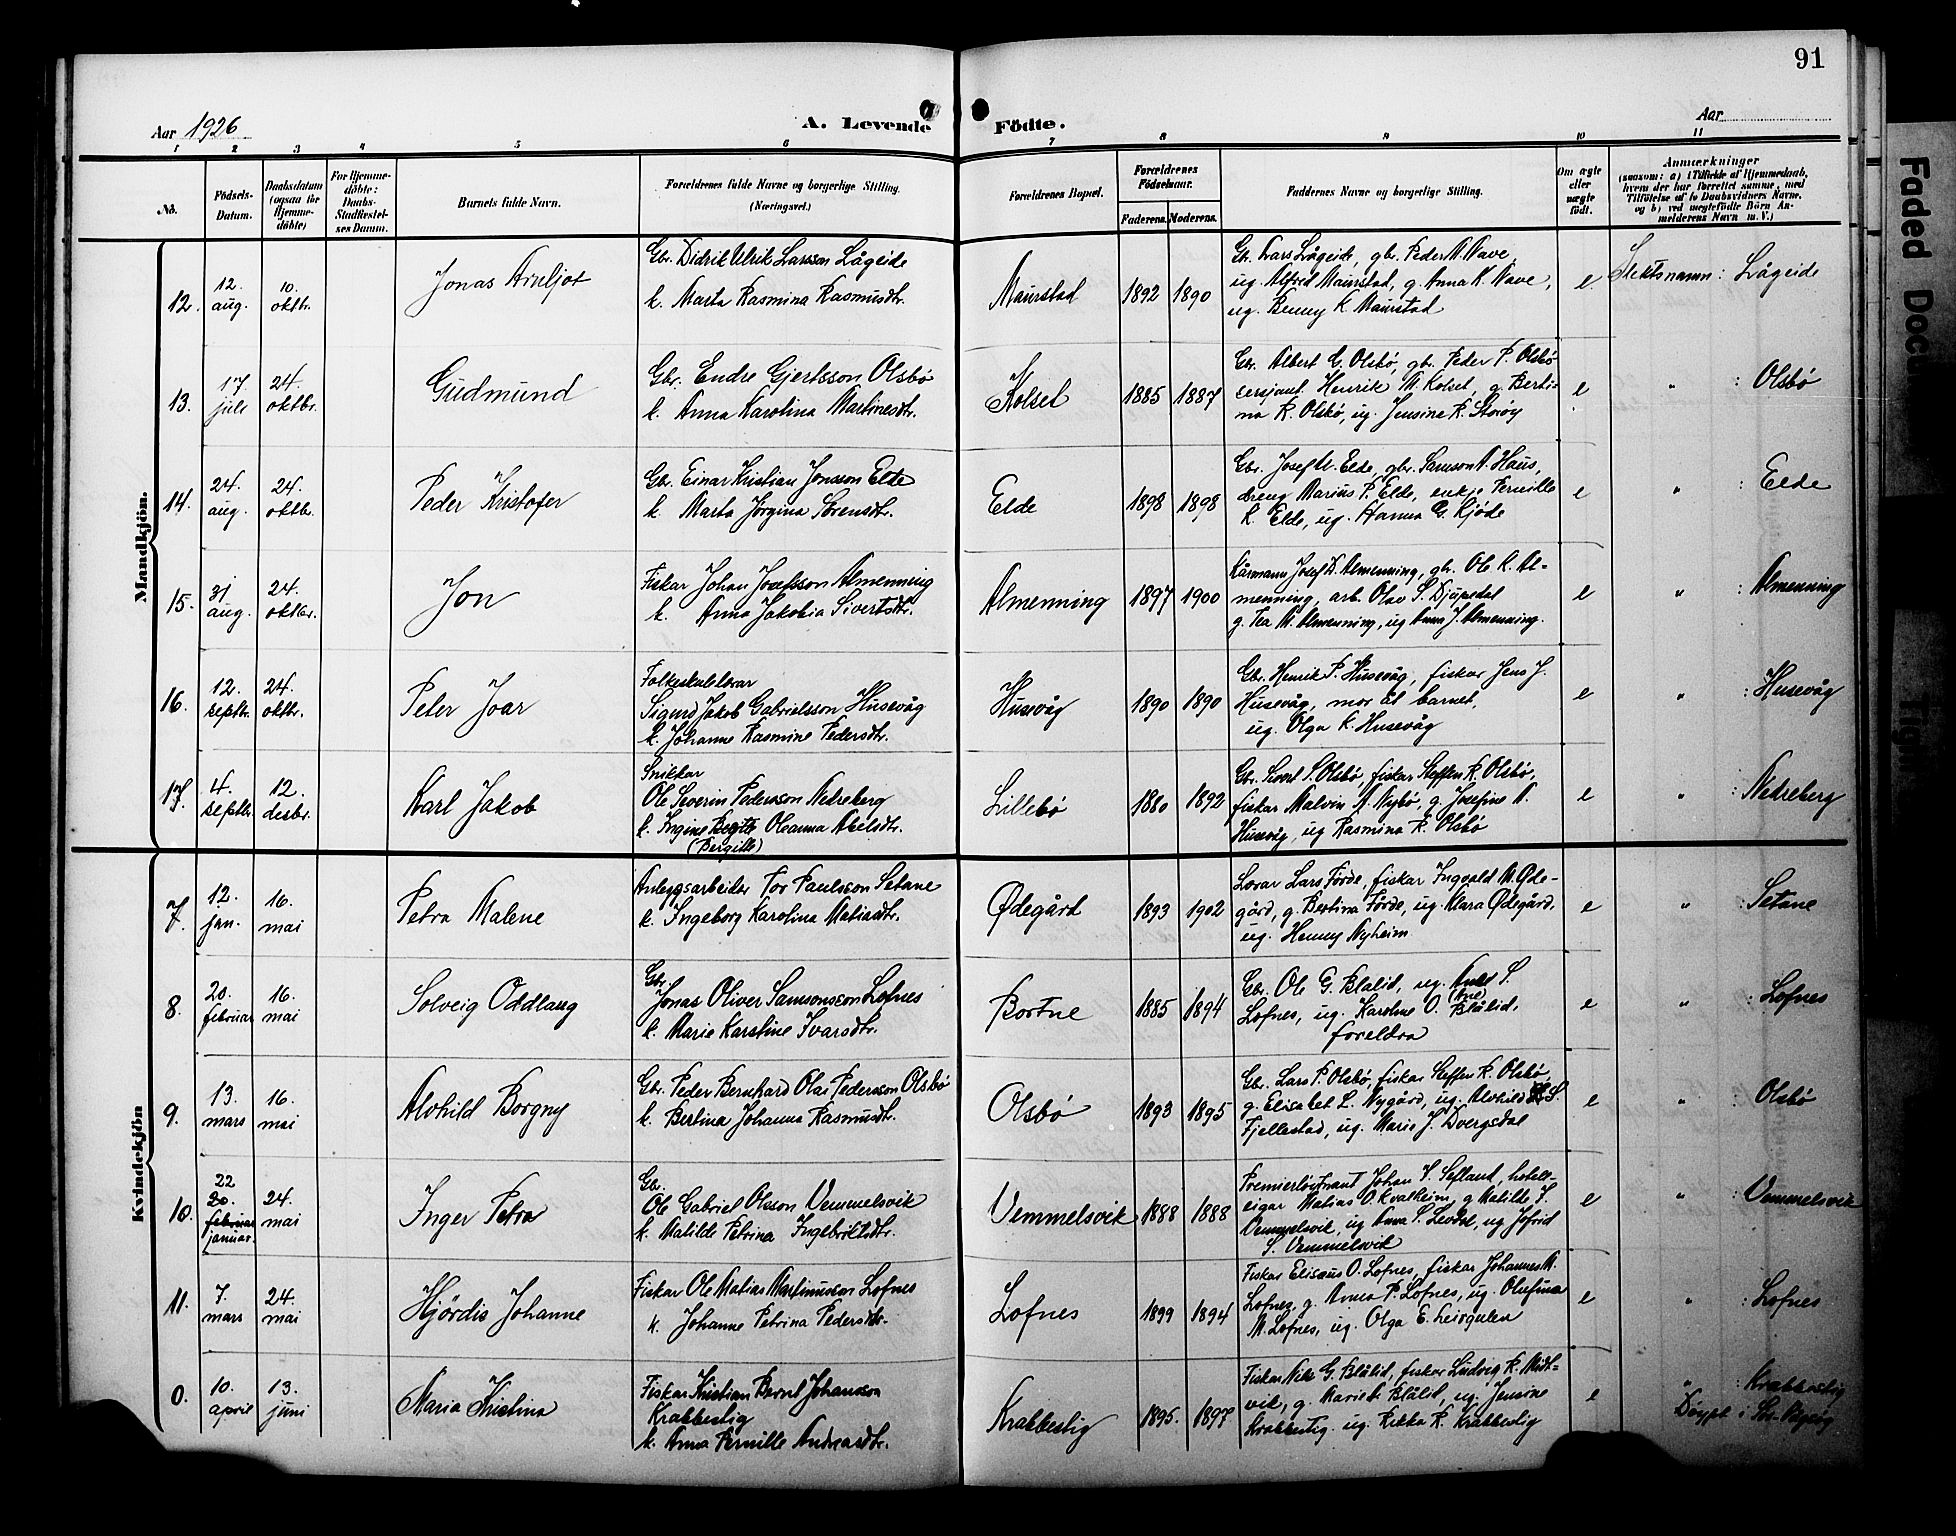 91
Aar 1926
A. Levende Födte.
Aar
1 2 3 4 5 6 7 8 9 10 11
No.
Födsels-
Datum.
Daabsdatum
(ogsaa for
Hjemme-
döbte)
For Hjemme-
döbte:
Daabs-
Stadfæstel-
ses Datum.
Barnets fulde Navn.
Forældrenes fulde Navne og borgerlige Stilling.
(Næringsvei.)
Forældrenes Bopæl.
Forældrenes
Födselsaar.
Faderens. Moderens.
Faddernes Navne og borgerlige Stilling.
Om ægte
eller
uægte
födt.
Anmærkninger
(saasom: a) i Tilfælde af Hjemmedaab,
hvem der har forrettet samme, med
Tilföielse af to Daabsvidners Navne,
og b) ved uægtefödte Börn An-
melderens Navn m. V.)
Mandkjön.
12. 12. aug. 10. oktbr. Jonas Arnljot
Gbr. Didrik Ulrik Larsson Lågeide
k. Marta Rasmina Rasmusdtr.
Maurstad 1892 1890
Gbr. Lars Lågeide, gbr. Peder M. Nave,
ug. Alfred Maurstad, g. Anna K. Nave,
ug. Benny K. Maurstad
e. Slektsnamn: Lågeide
13. 17 juli 24. oktbr. Gudmund
Gbr. Endre Gjertsson Olsbø
k. Anna Karolina Martinesdtr.
Kolset 1885 1887
Gbr. Albert G. Olsbø, gbr. Peder P. Olsbø
sersjant Henrik M. Kolset, g. Berti-
na R. Olsbø, ug. Jensine R. Storøy
e " : Olsbø
14. 24. aug. 24. oktbr. Peder Kristofer
Gbr. Einar Kristian Jonsson Elde
k. Marta Jørgina Sørensdtr.
Elde 1898 1898
Gbr. Josef M. Elde, gbr. Samson A. Haus,
dreng Marius P. Elde, enkje Pernille
R. Elde, ug. Hanna G. Kjøde
e " : Elde
15. 31 aug. 24. oktbr. Jon
Fiskar Johan Josefsson Almenning
k. Anna Jakobia Sivertsdtr.
Almenning 1897 1900
Kårmann Josef D. Almenning, gbr. Ole R. Al-
menning, arb. Olav S. Djupedal
g. Tea M. Almenning, ug Anna J. Almenning.
e " : Almenning
16. 12. septbr. 24. oktbr. Peter Joar
Folkeskulelærar
Sigurd Jakob Gabrielsson Husevåg
k. Johanne Rasmine Pedersdtr.
Husevåg 1890 1890
Gbr. Henrik P. Husevåg, fiskar Jens J.
Husevåg, mor åt barnet,
ug. Olga K. Husevåg
e " : Husevåg
17. 4. septbr. 12. desbr. Karl Jakob
Snikkar
Ole Severin Pedersson Nedreberg
k. Ingine Oleanna Abelsdtr.
(Bergitte)
Lillebø 1880 1892
Gbr. Sivert S. Olsbø, fiskar Steffen R. Olsbø,
fiskar Malvin A. Nybø, g. Josefine A.
Husevåg, ug Rasmina R. Olsbø
e " : Nedreberg
Kvindekjön
7. 12. jan. 16. mai Petra Malene
Anleggsarbeider Tor Paulsson Setane
k. Ingeborg Karolina Matiasdtr.
Ødegård 1893 1902
Lærar Lars Førde, fiskar Ingvald M. Øde-
gård, g. Bertina Førde, ug. Klara Ødegård,
ug. Henny Nyheim.
e " : Setane
8. 20. februar 16. mai Solveig Oddlaug
Gbr.
Jonas Oliver Samsonsson Lofnes
k. Marie Karstine Ivarsdtr.
Bortne 1885 1894
Gbr. Ole G. Blålid, ug. S.
Lofnes, ug. Karoline O. Blålid,
foreldra
e " : Lofnes
9. 13. mars 16. mai Alvhild Borgny
Gbr. Peder Bernhard Olai Pedersson Olsbø
k. Bertina Johanna Rasmusdtr.
Olsbø 1893 1895
Gbr. Lars P. Olsbø, fiskar Steffen R. Olsbø,
g. Elisabet L. Nygård, ug. Alvhild S.
Fjellestad, ug. Marie J. Dvergsdal
e " : Olsbø
10. 22 20. februar januar. 24. mai Inger Petra
Gbr.
Ole Gabriel Olsson Vemmelsvik
k. Matilde Petrina Ingebriktsdtr.
Vemmelsvik 1888 1888
Premierløitnant Johan S. Sefland, hotell-
eigar Matias O. Kvalheim, g Matilde S.
Vemmelsvik, ug Anna S. Levdal, ug Jofrid
S. Vemmelsvik
e " : Vemmelsvik
11. 7. mars 24. mai Hjørdis Johanne
Fiskar Ole Matias Martinusson Lofnes
k. Johanne Petrina Pedersdtr.
Lofnes 1899 1894
Fiskar Elisæus O. Lofnes, fiskar Johannes M.
Lofnes, g. Anna P. Lofnes, ug. Olufina
M. Lofnes, ug. Olga E. Leirgulen
e " : Lofnes
0. 10. april 13. juni Maria Kristina
Fiskar Kristian Bernt Johansson
Krabbestig
k. Anna Pernille Andreasdtr.
Krabbestig 1895. 1897
Fiskar Nils G. Blålid, fiskar Ludvig R. Midt-
vik, g. Marie L. Blålid, ug. Jensine
Krabbestig. ug. Rikka R. Krabbestig
e " : Krabbestig
Døypt i Sør-Vågsøy
Faded Doc